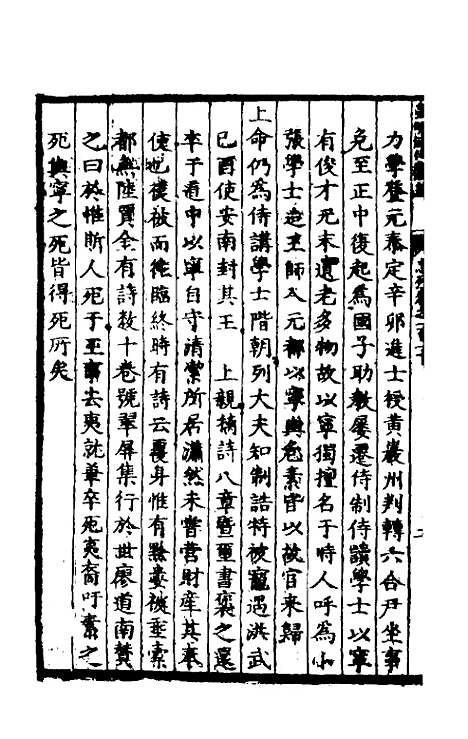 力學登元泰定辛卯進士授黃巖州判轉六合尹坐事
免至正中復起為國子助教屢遷待制侍讀學士以寧
有俊才元末遺老多物故以寧獨擅名于時人呼為小
張學士迨王師入元都以寧與危素皆以故官來歸
上命仍為侍講學士階朝列大夫知制誥特被寵遇洪武
己酉使安南封其王 上親橋詩八章暨璽書褒之還
卒于道中以寧自守清潔所居瀟然未嘗營財産其奉
使也襆被而往臨終時有詩云覆身惟有黔婁被垂橐
都無陸賈金有詩數十卷號翠屏集行於世廖道南贊
之曰於惟斯人死于王事去夷就華卒死夷裔吁素之
死與寧之死皆得死所矣